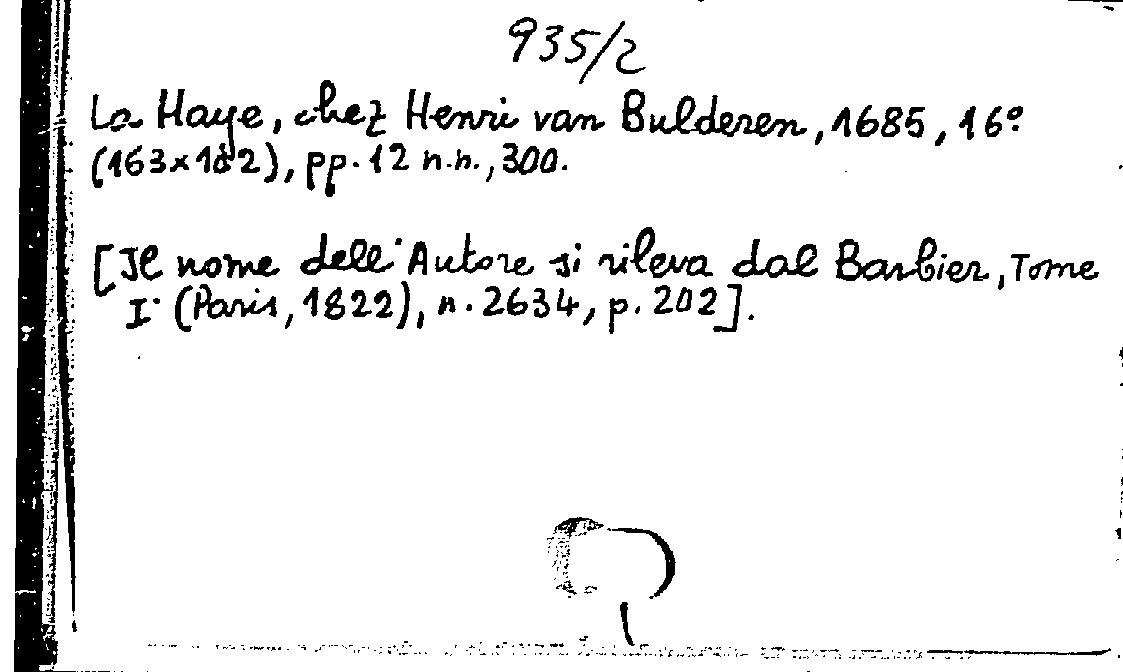 935/2
La Haye, chez Henri van Bulderen, 1685, 16º
(163x102), pp. 12 n.n., 300.
[Il nome dell'Autore si rileva dal Barbier, Tome
I· (Paris, 1822), n. 2634, p. 202].